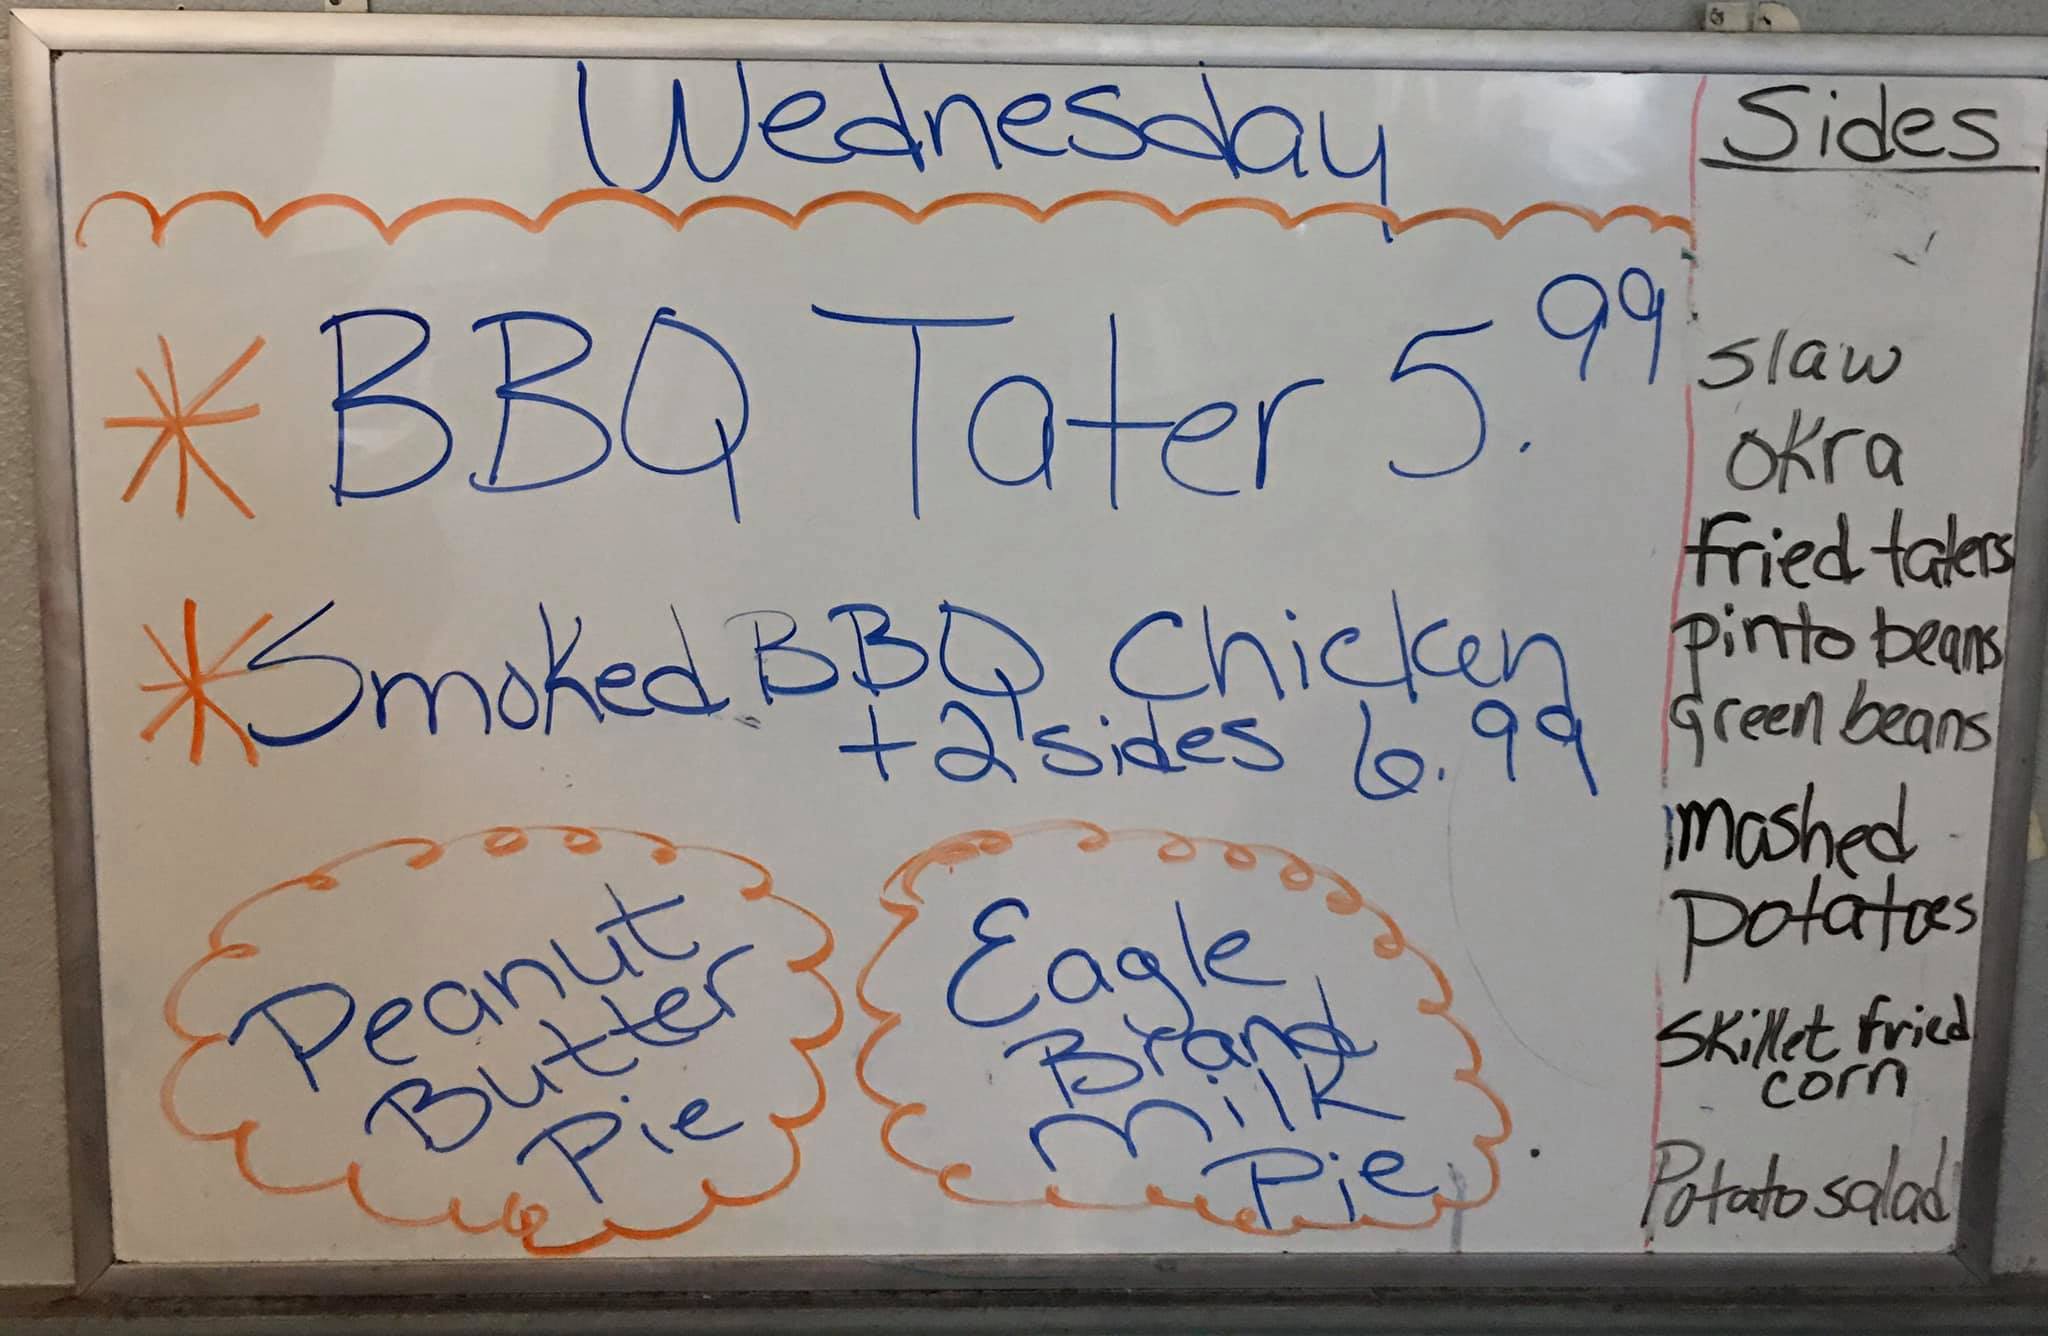 Wednesday
BBQ Tater 5.99
Smoked BBQ Chicken
+2 sides 6.99
Peanut
Butter
Pie
Eagle
Brand
Milk
Pie
Sides
slaw
okra
fried taters
pinto beans
green beans
mashed
potatoes
skillet fried
corn
Potato salad